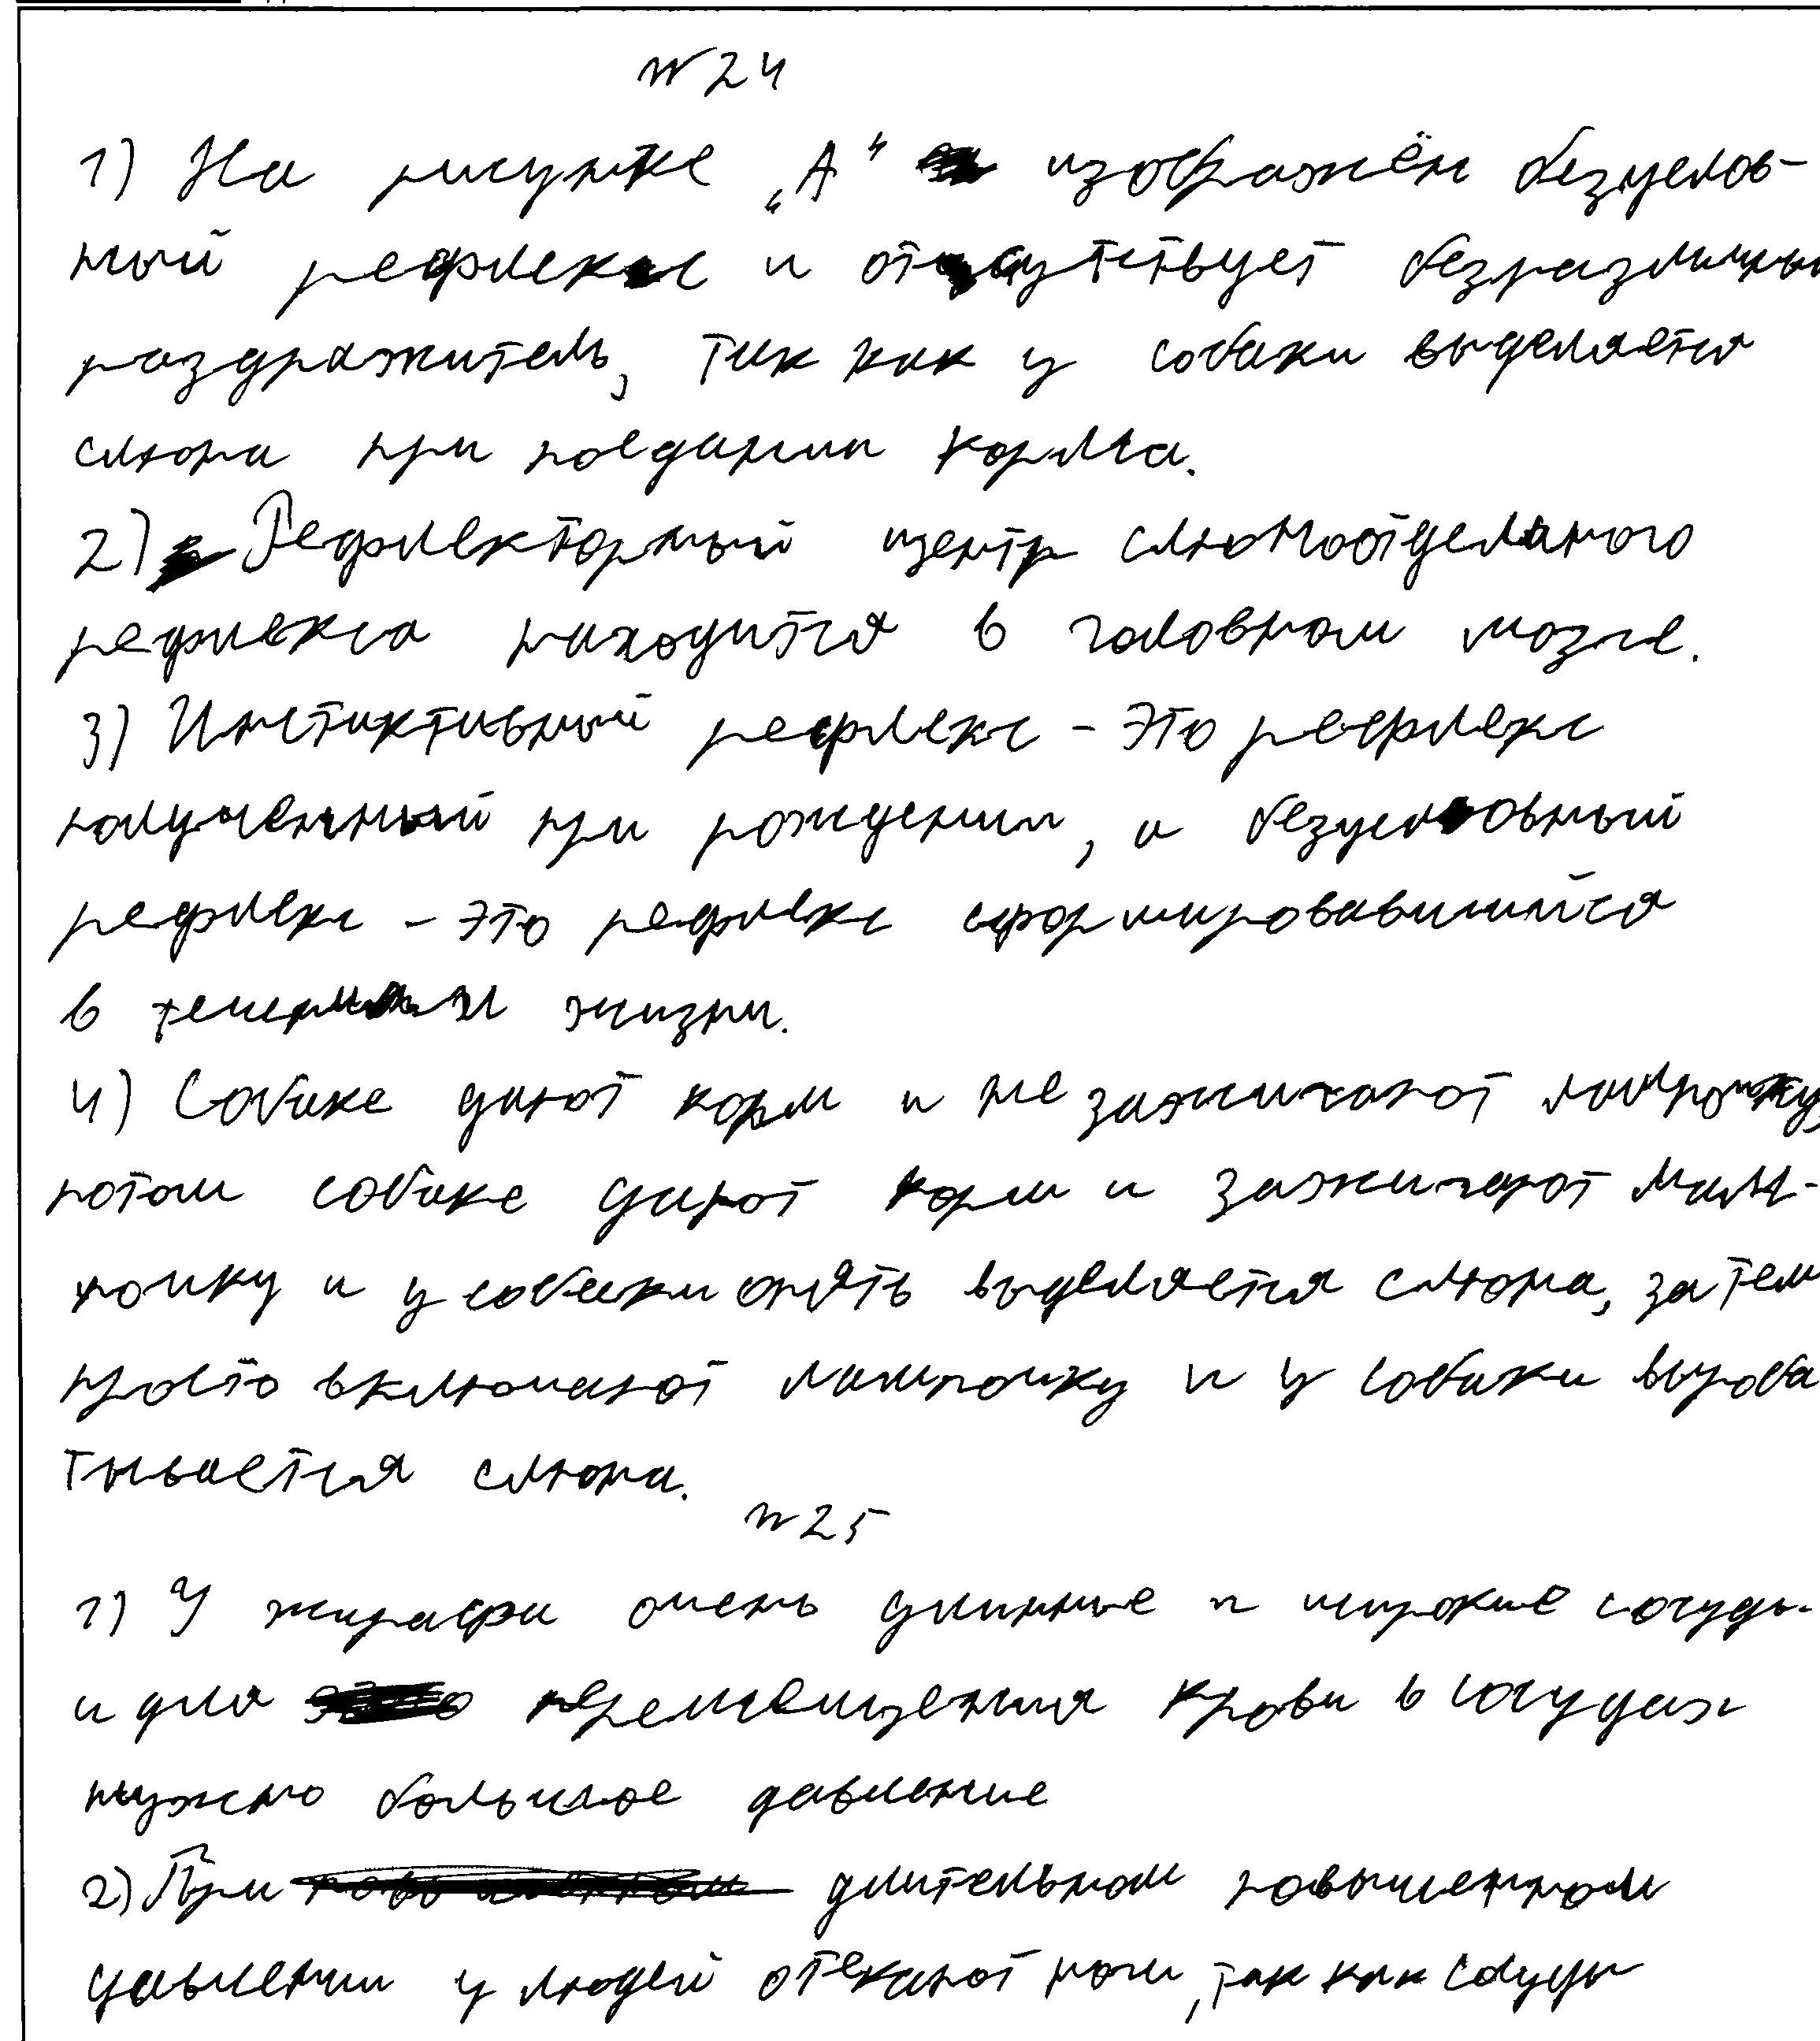 №24
1) На рисунке „А“ изображён безуслов-
ный рефлекс и отсутствует безразличны
раздражитель, так как у собаки выделяется
слюна при поедании корма.
2) Рефлекторный центр слюноотделаного
рефлекса находится в головном мозге.
3) Инстиктивный рефлекс - это рефлекс
полученный при рождении, а безусловный
рефлекс - это рефлекс сформировавшийся
в течении жизни.
4) Собаке дают корм и не зажигают лампочку,
потом собаке дают корм и зажигают ламп-
почку и у собаки опять выделяется слюна, затем
просто включают лампочку и у собаки выроба
тывается слюна.
№25
1) У жирафа очень длинные и широкие сосуды
и для перемещения крови в сосудах
нужно большое давление
2) При длительном повышенном
давлении у людей отекают ноги, так как сосуды